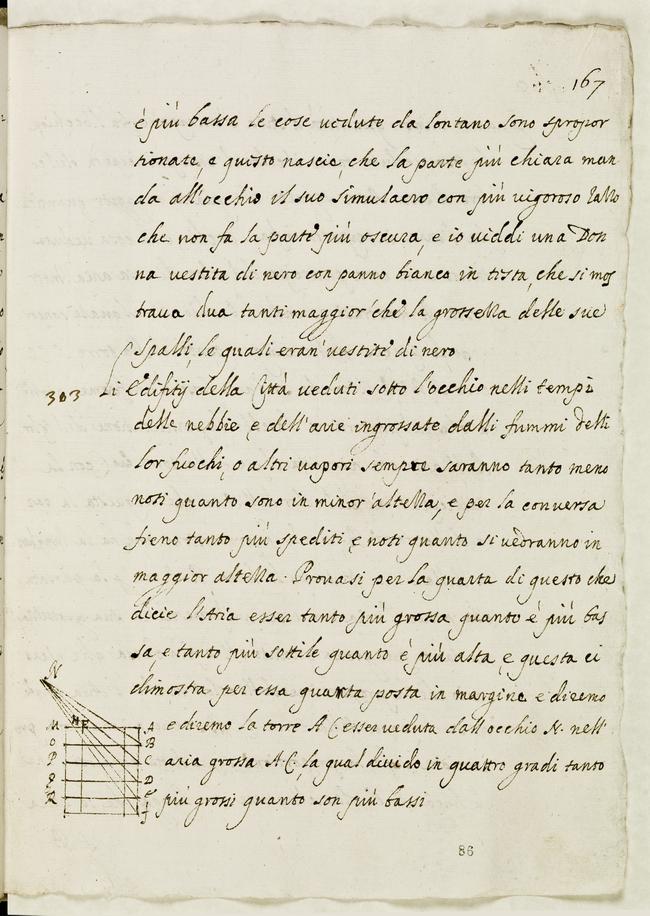 167
è più bassa le cose uedute da lontano sono spropor
tionate, e questo nascie, che la parte più chiara man
da all'occhio il suo simulacro con più uigoroso
che non fa la parte più oscura, e io uiddi una Don
na vestita di nero con panno bianco in testa, che si mos
traua dua tanti maggior' che la grossezza delle sue
spalli, le quali eran' uestite di nero
303 Li Edifitij della Città ueduti sotto l'occhio nelli tempi
delle nebbie e dell'arie ingrossate dalli fummi delli
lor fuochi, o altri uapori sempre saranno tanto meno
noti quanto sono in minor'altezza, e per la conuersa
fieno tanto più spediti e noti quanto si uedranno in
maggior altezza. Prouasi per la quarta di questo che
dicie l'Aria esser tanto più grossa quanto è più bas
sa, e tanto più sottile quanto è più alta, e questa ci
dimostra per essa quarta posta in margine e diremo
e diremo la torre A C. esser ueduta dall'occhio N. nell'
aria grossa A.C. la qual diuido in quattro gradi tanto
più grossi quanto son più bassi
N
M H F A
O B
P C
D
R E
f
86